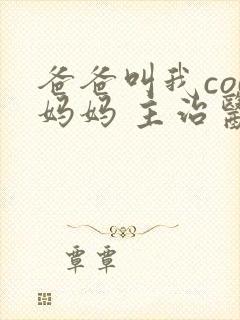 爸爸叫我co
妈妈 主治
覃覃